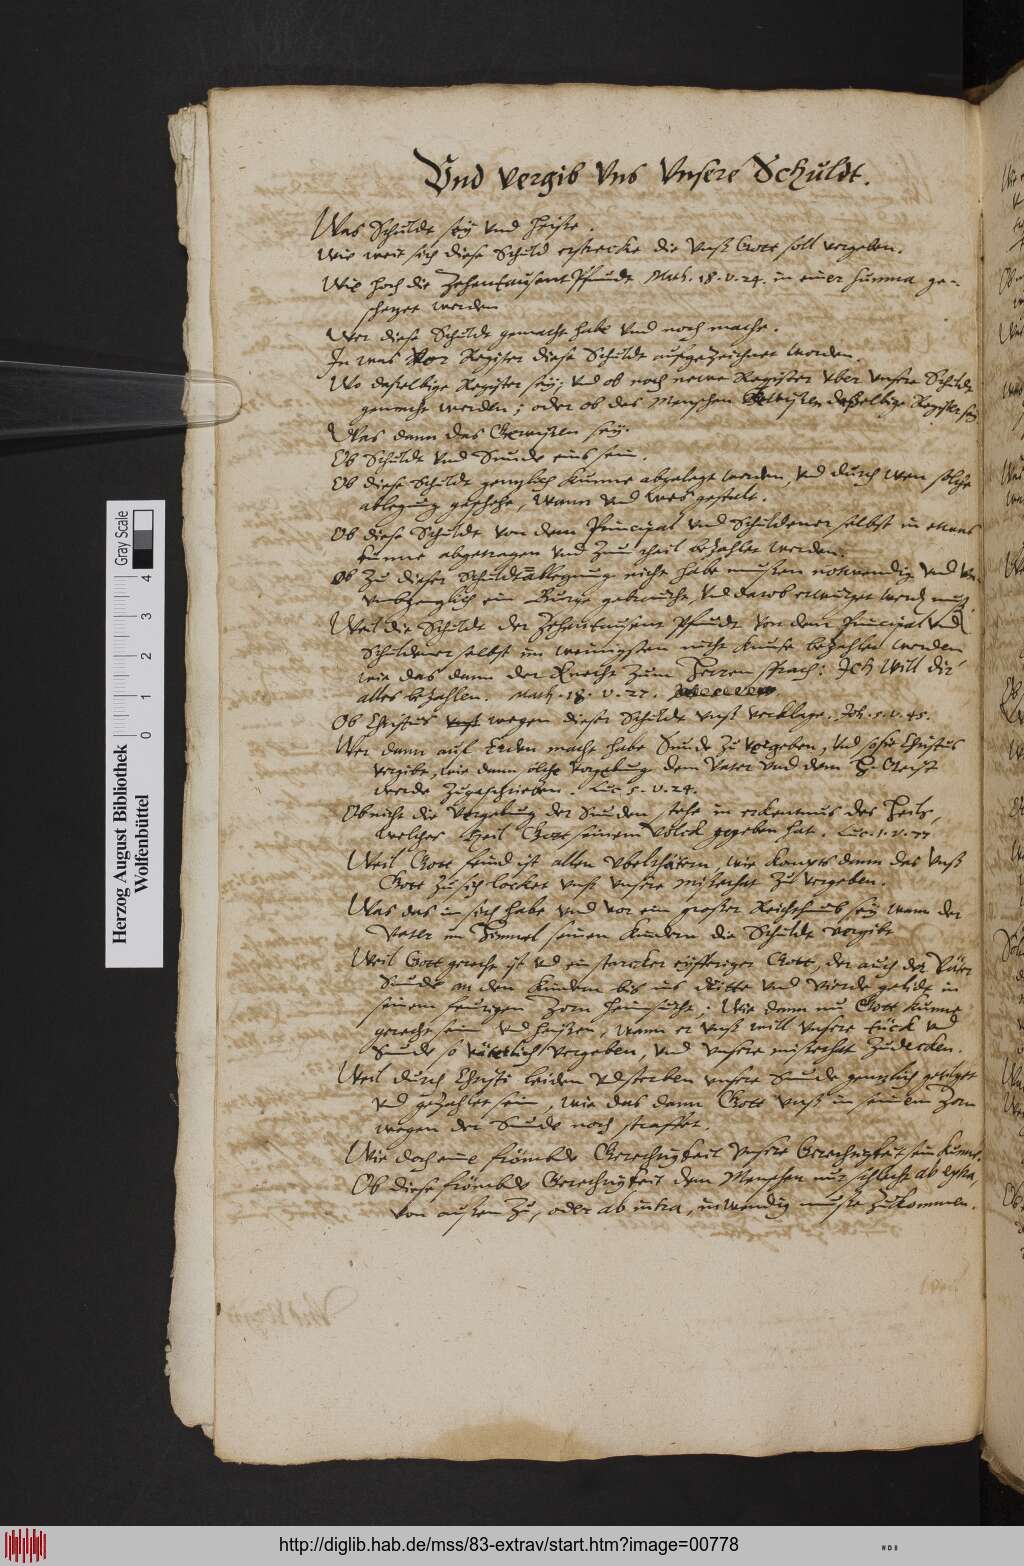 Vnd vergib Vns Vnsere Schuldt.
Was Schuldt sey vnd heiße.
Wie weit sich diese Schuld erstrecke die vnß Gott soll vergeben.
Wie hoch die Zehentausent Pfundt Math. 18. v. 24. in einer summa ge-
schetzet werden
Wer diese Schuldt gemacht habe vnd noch mache.
In was vor Register diese Schuldt aufgezeichnet worden.
Wo daselbige Register sey; vnd ob noch newe Register vber vnsere Schuldt
gemacht werden; oder ob des Menschen Gewissen daßelbige Register sey
Was dann das Gewissen sey.
Ob Schuldt vnd Sunde eins sein.
Ob diese Schuldt gentzlich kunne abgelegt werden, vnd durch wen solche
ablegung geschehe, wann vnd wes gestalt.
Ob diese Schuldt von dem Principal vnd Schuldener selbst in etwas
kunne abgetragen vnd zum theil bezahlet werden.
Ob zu dieser Schuldt ablegung nicht habe mußen notwendig vnd
ein Burge gebraucht, vnd darob erwurget werd muß.
Weil die Schuldt der Zehentausent Pfundt von dem Principal vnd
Schuldener selbst im wenigsten nicht kunte bezahlet werden
wie das dann der Knecht zum Herren sprach: Ich will dir
alles bezahlen. Math. 18. v. 27.
Ob Christus vnß wegen dieser Schuldt vnß verklage. Joh. 5. v. 45.
Wer dann auf Erden macht habe Sunde zu vergeben, vnd so sie Christus
vergibt, wie dann solche vergebung dem Vater vnd dem H. Geist
werde zugeschrieben. Luc. 5. v. 24.
Ob nicht die vergebung der Sunden, stehe in erkentnus des Heils,
welches Heil Gott seinem Volck gegeben hat. Luc. 1. v. 77
Weil Gott feind ist allen Vbelthätern, wie kompts dann das vnß
Gott zu sich locket vnß vnsere missethat zu vergeben.
Was das in sich habe vnd vor ein großer sey wann der
Vater im Himmel seinen kindern die Schuldt vergibt
Weil Gott gerecht ist vnd ein starcker eyfferiger Gott, der auch der Väter
Sunde an den kindern bis ins dritte vnd vierde gelidt in
seinem feurigen Zorn heimsucht; Wie dann nu Gott kunne
gerecht sein vnd heißen, wann er vnß will vnsere tück vnd
Sunde so väterlich vergeben, vnd vnsere missethat zudecken.
Weil durch Christi leiden vnd sterben vnsere Sunde gentzlich getilget
vnd gezahlet sein, wie das dann Gott vnß in seinem Zorn
wegen der Sunde noch straffet.
Wie doch eine frömbde Gerechtigkeit vnsere Gerechtigkeit sein kunne.
Ob diese frömbde Gerechtigkeit dem Menschen nur schlecht ab extra,
von außen zu, oder ab intra, inwendig muße zukommen.
Herzog August Bibliothek
Wolfenbüttel
0 1 2 3 4
Gray Scale
http://diglib.hab.de/mss/83-extrav/start.htm?image=00778